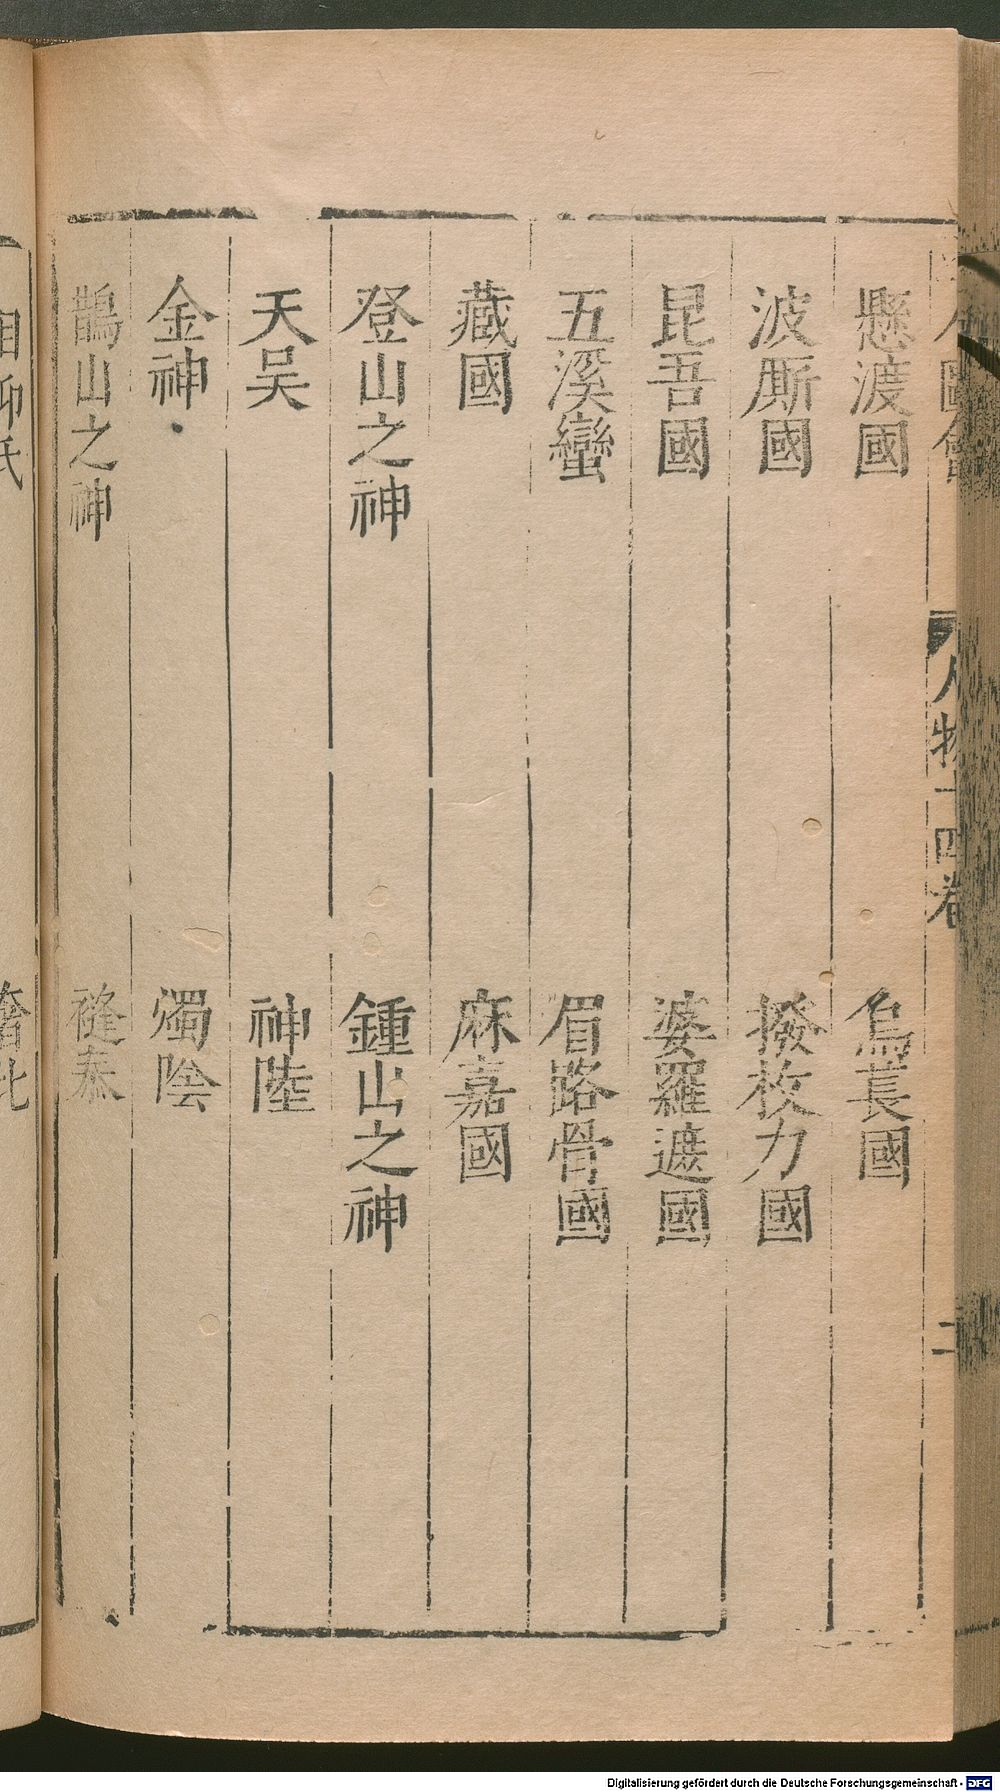 人物十四卷
二
懸渡國 烏萇國
波厮國 撥枚力國
昆吾國 婆羅遮國
五溪蠻 眉路骨國
藏國 麻嘉國
登山之神 鍾山之神
天吴 神陸
金神 燭陰
鵲山之神 䄛㳟
Digitalisierung gefördert durch die Deutsche Forschungsgemeinschaft - DFG